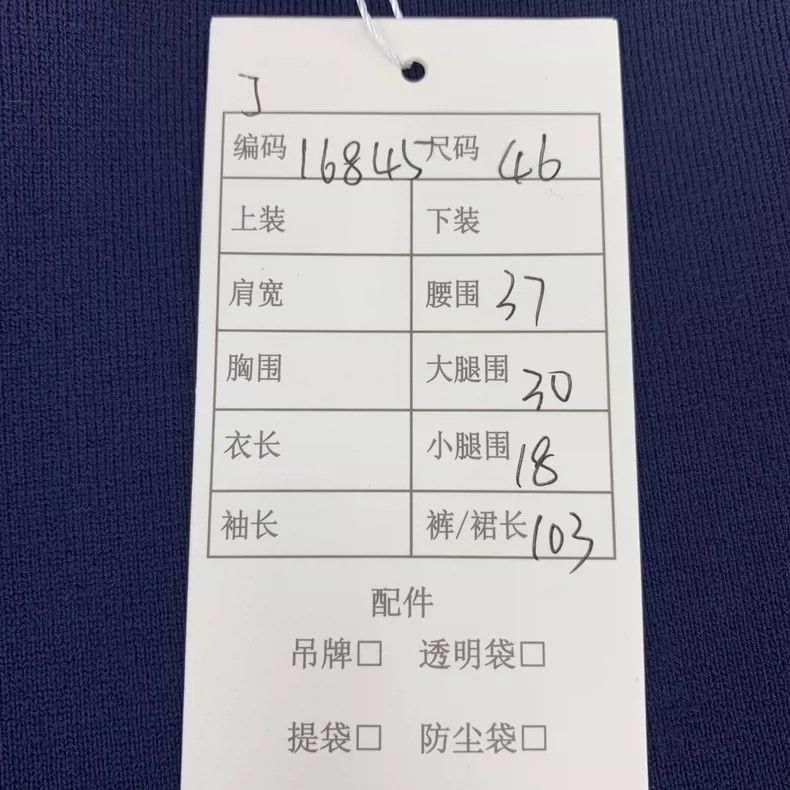 J
编码 16845 尺码 46
上装 下装
肩宽 腰围 37
胸围 大腿围 30
衣长 小腿围 18
袖长 裤/裙长 103
配件
吊牌□ 透明袋□
提袋□ 防尘袋□